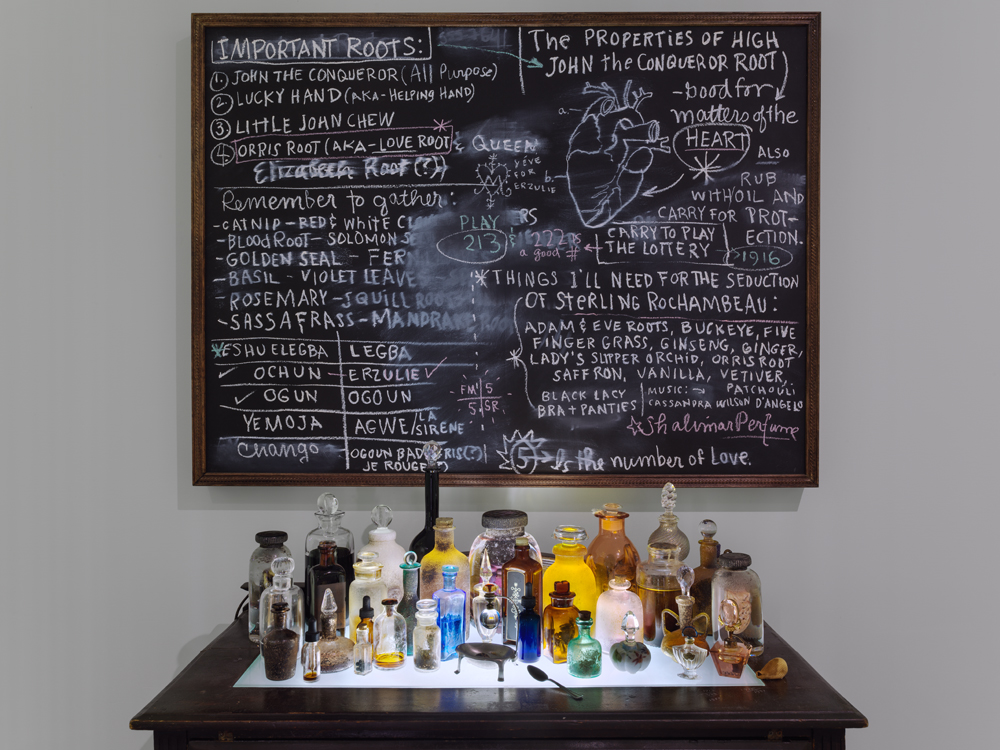 IMPORTANT ROOTS:
1. JOHN THE CONQUEROR (All Purpose)
2. LUCKY HAND (AKA-HELPING HAND)
3 LITTLE JOHN CHEW
4. ORRIS ROOT (AKA-LOVE ROOT & QUEEN
Elizabeth Root (?))
Remember to gather:
-CATNIP-RED & White CL
-BLOOD ROOT-SOLOMON SE
-GOLDEN SEAL - FER
-BASIL - VIOLET LEAVE
-ROSEMARY-SQUILL ROOT
-SASSAFRASS-MANDRAKE ROO
ESHU ELEGBA LEGBA
OCHUN - ERZULIE
OGUN OGOUN
YEMOJA AGWE/LA SIRENE
CHANGO OGOUN BAD RIS(?)
JE ROUGE(?)
VÉVÉ
FOR
ERZULIE
PLAY
213
& 222
a good #
FM 5
5 SR
The PROPERTIES OF HIGH
JOHN the CONQUEROR ROOT
-Good for
matters of the
HEART
a.
b.
ALSO
RUB
WITH OIL AND
CARRY FOR PROT-
ECTION.
CARRY TO PLAY
THE LOTTERY
1916
*THINGS I'LL NEED FOR THE SEDUCTION
OF STERLING ROCHAMBEAU:
ADAM & EVE ROOTS, BUCKEYE, FIVE
FINGER GRASS, GINSENG, GINGER,
LADY'S SLIPPER ORCHID, ORRIS ROOT
SAFFRON, VANILLA, VETIVER,
PATCHOULI
BLACK LACY
BRA + PANTIES
MUSIC:
CASSANDRA WILSON D'ANGELO
Shalimar Perfume
5 Is the number of Love.